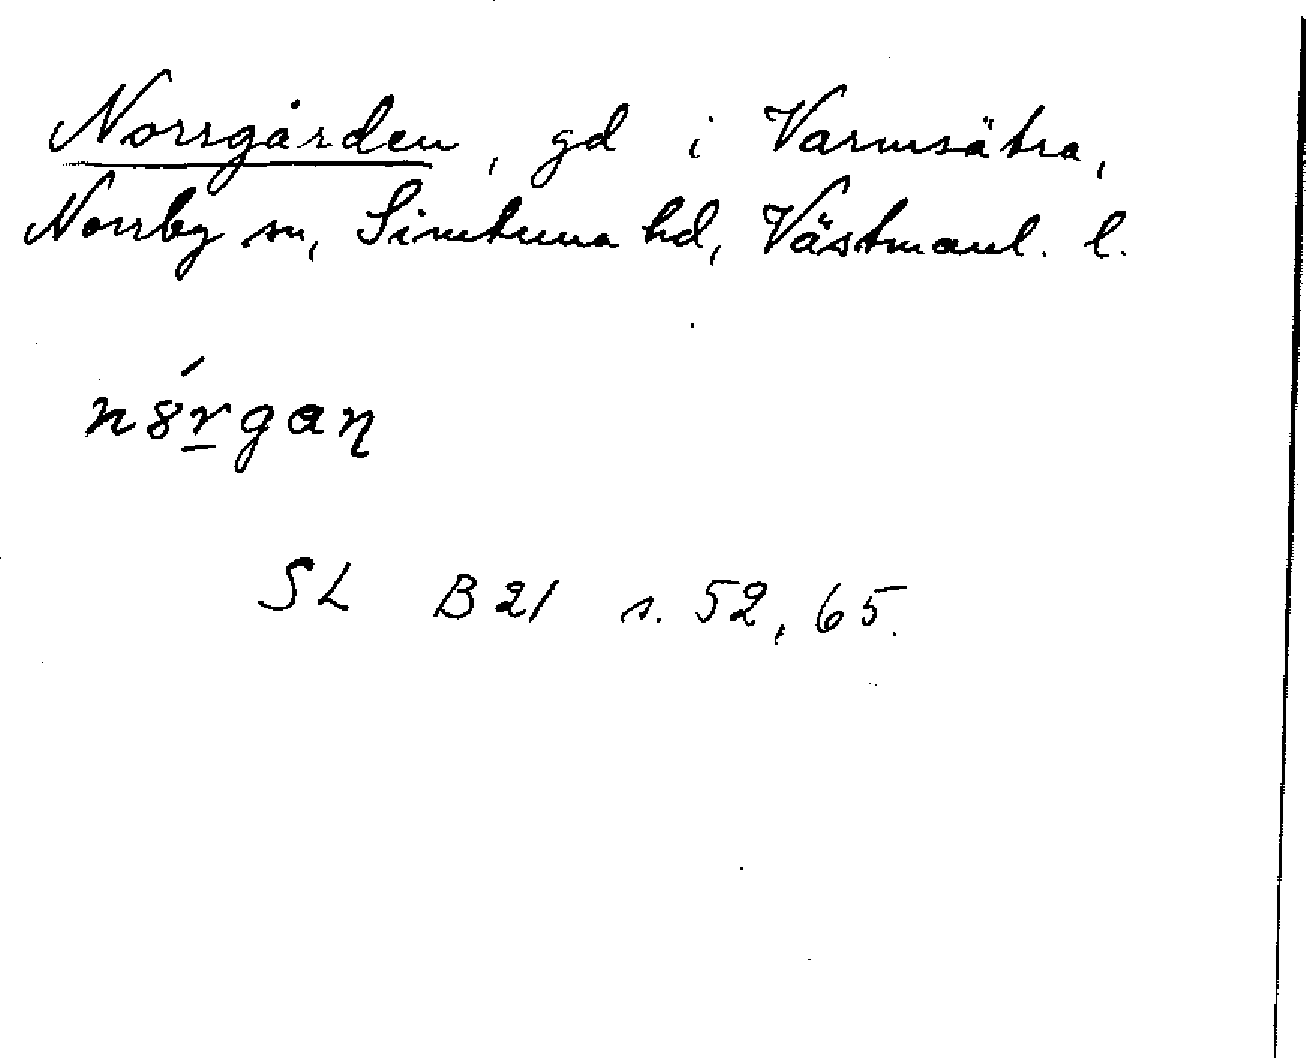 Norrgården, gd i Varmsätra,
Norrby sn, Simtuna hd, Västmanl. l.
n8́rgaɳ
SL B21 s. 52, 65.